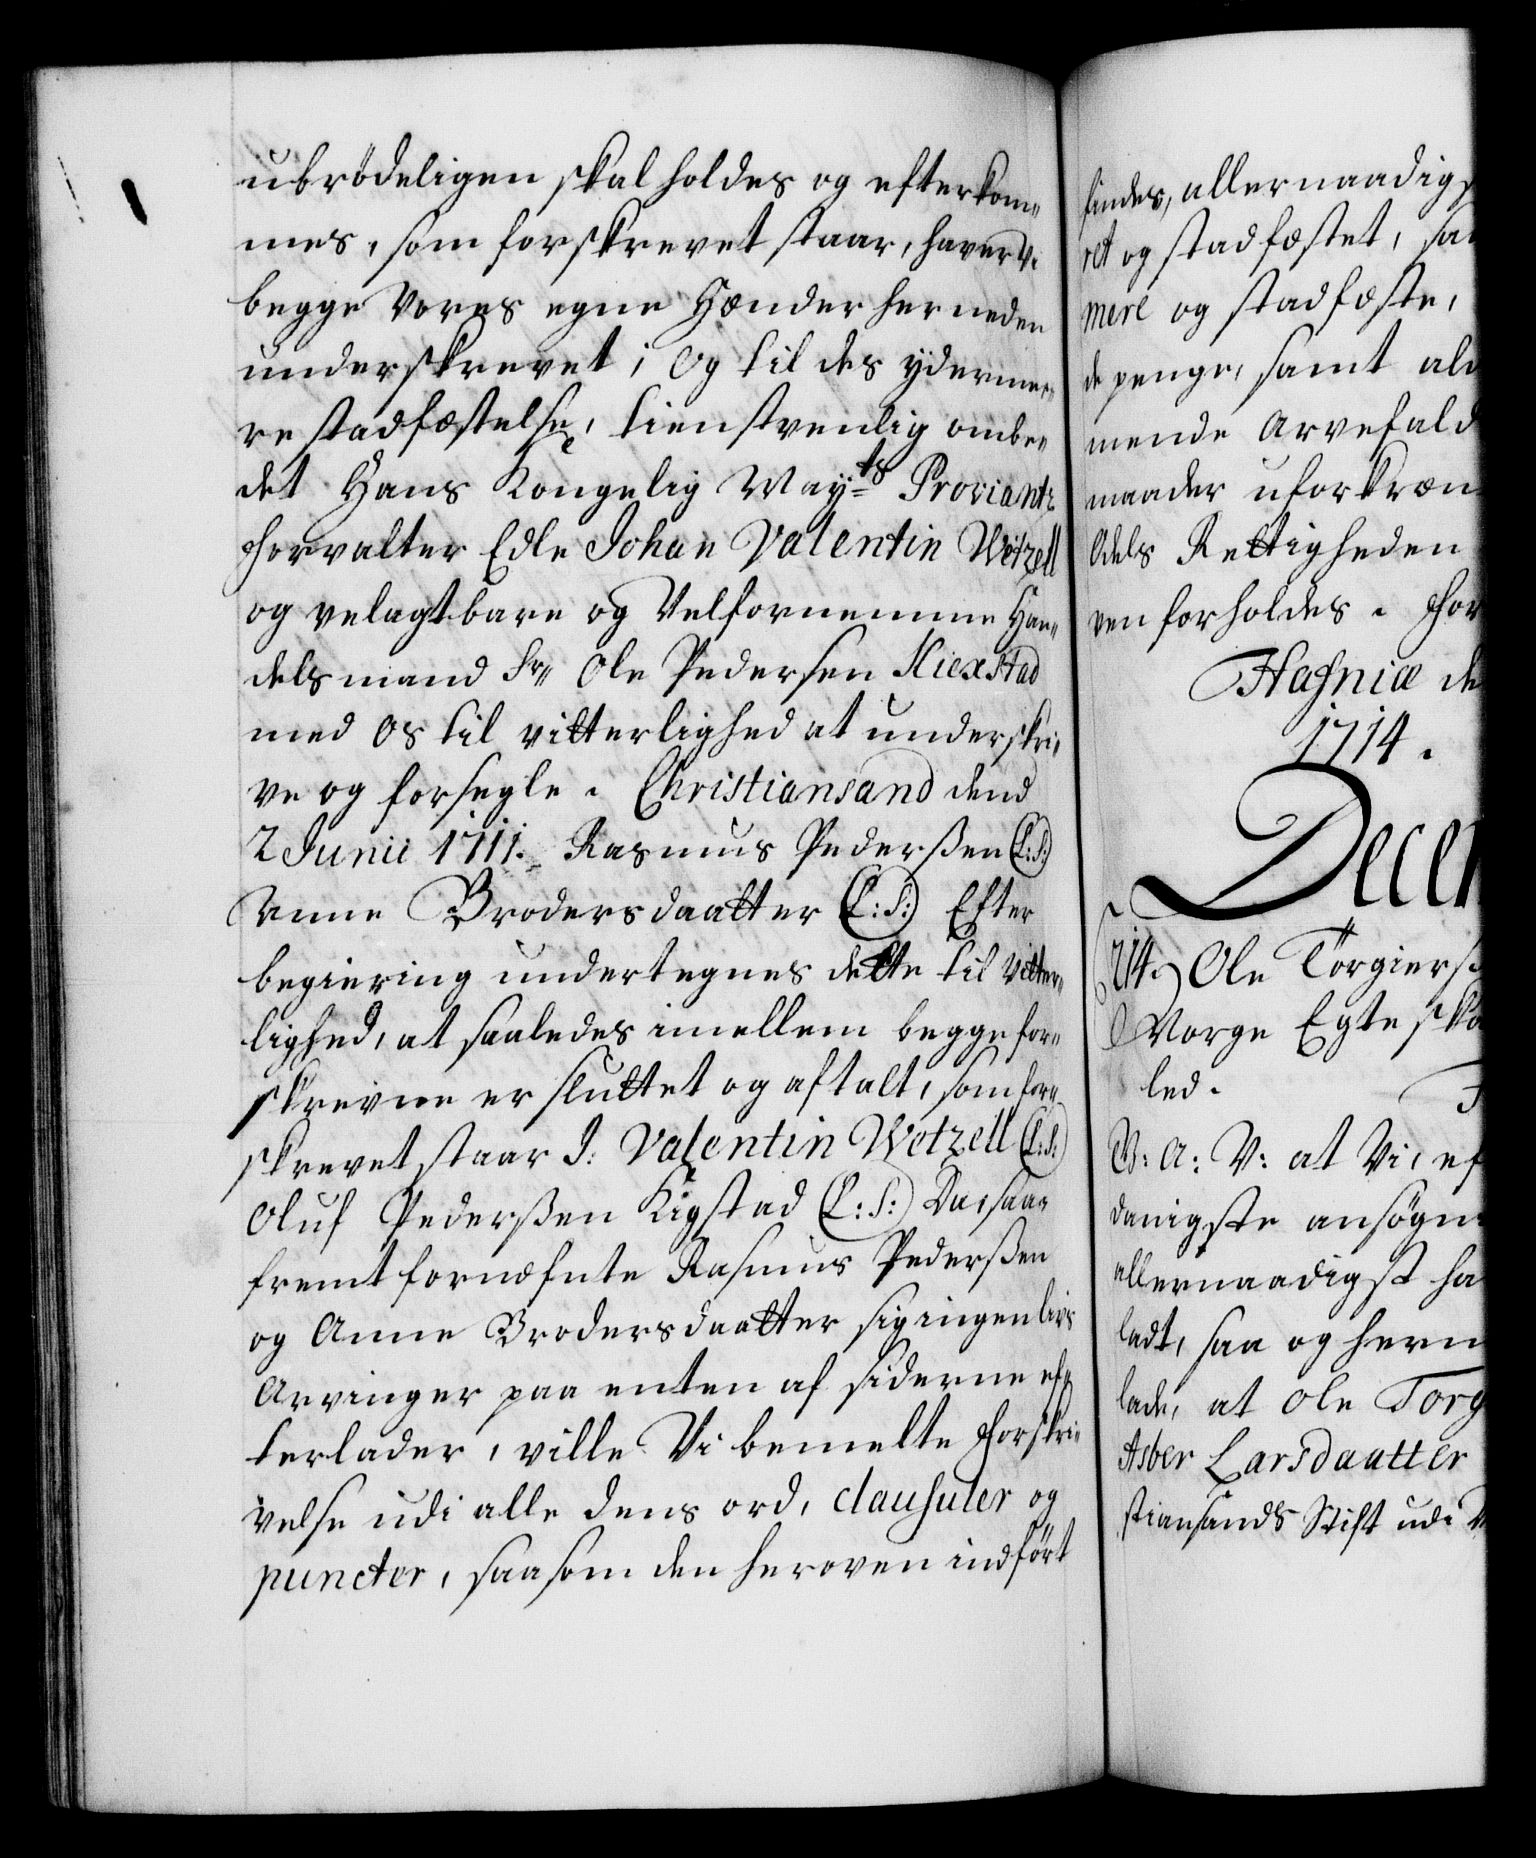 ubrödeligen skal holdes og efterkom„
mes, som forskrevet staar, haver Vi
begge Vores egne Hænder her neden
underskrevet; Og til des ydermee„
re stadfæstelse, tienstvenlig ombe„
det Hans Kongelig May=ts Proviantz
Forvalter Edle Johan Valentin Wetzell
og velagtbare og Velfornemme Han„
delsmand Sr„ Ole Pedersen Kiexstad
med os til vitterlighed at underskri„
ve og forsegle. Christiansand dend
2 Junii 1711. Rasmus Pederßen (L:S:)
Anne Brodersdaatter (L:S:) Efter
begiering undertegnes dette til vitter„
lighed, at saaledes imellem begge for„
skrevne er sluttet og aftalt, som for„
skrevet staar J: Valentin Wetzell (L:S:)
Oluf Pederßen Kigstad (L:S:) Da, saa„
fremt fornæfnte Rasmus Pederßen
og Anne Brodersdaatter sig ingen livs
Arvinger paa enten af siderne ef„
terlader, ville Vi bemelte Forskri„
velse udi alle dens ord, clausuler og
puncter, saasom den heroven indført
findes, allernaadigs
ret og stadfæstet, saa
mere og stadfæste,
de penge, samt al
mende Arvefald
maader uforkræn
Odels Rettigheden
ven forholdes. For
Hafniæ de
1714.
Decem
714. Ole Törgiers
Norge Egteska
led. F
G: A: V: at Vi, ef
danigste ansøgn
allernaadigst ha
ladt, saa og hern
lade, at Ole Torg
Asber Larsdaatter
stiansands Stift udi N